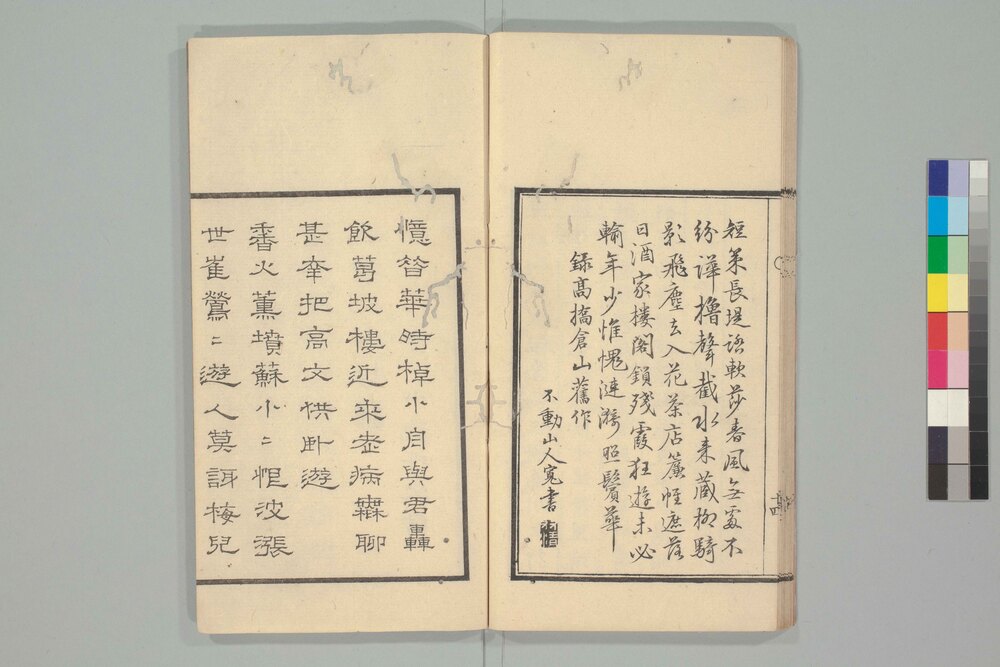 短策長堤踏軟莎春風無處不
紛譁櫓聲截水来蔵柳騎
影飛塵去入花茶店簾帷遮落
日酒家楼閣鎖残霞狂遊未必
輸年少惟愧漣漪照鬢華
録髙橋倉山舊作
不動山人寛書
十四
憶昔華時棹小自與君轟
飲葛坡樓近来老病無聊
甚牽把高文供卧遊
香火薫墳蘇小〻帽波漲
世崔鶯〻遊人莫訝梅兒